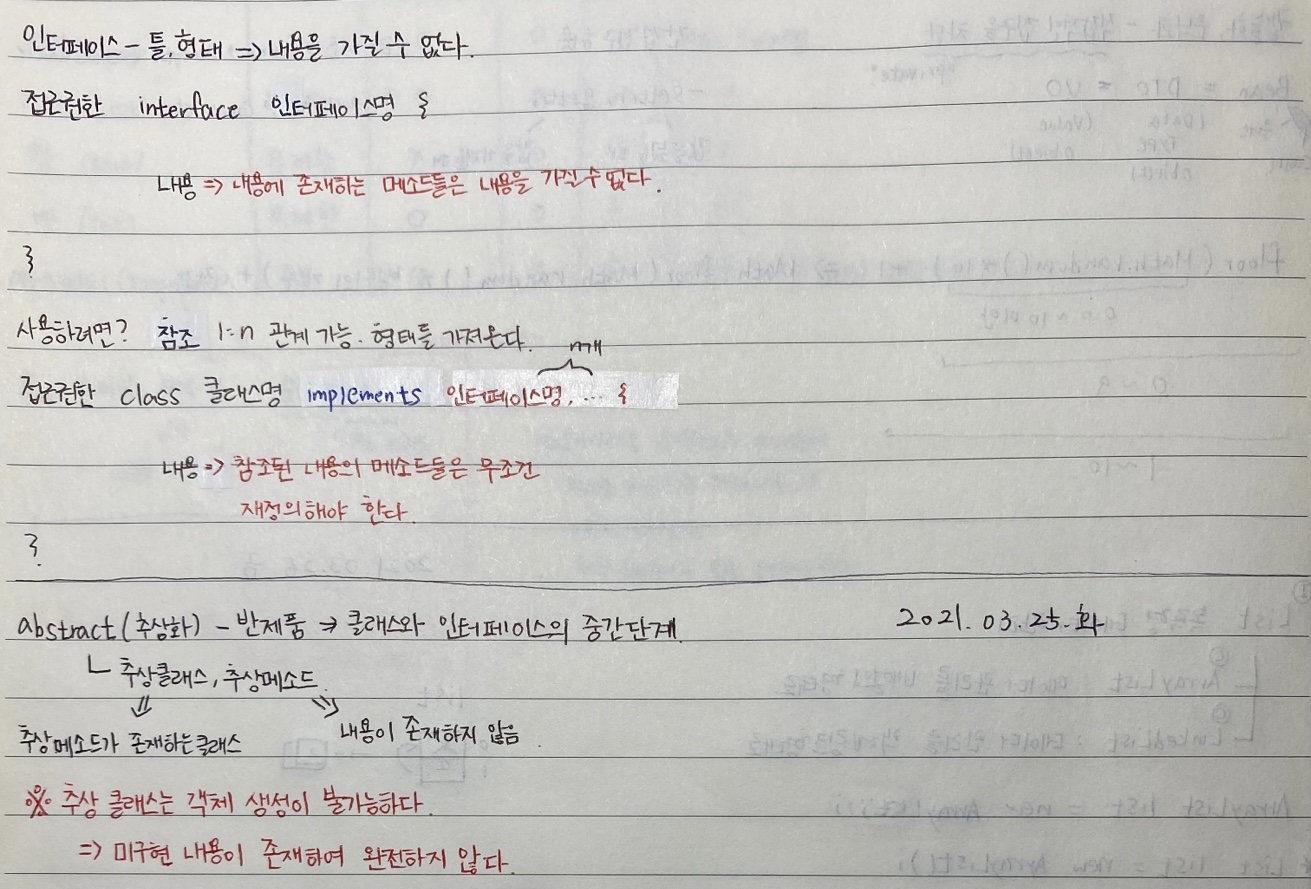 인터페이스 - 틀, 형태 => 내용을 가질 수 없다.
접근권한 interface 인터페이스명 {
내용 => 내용에 존재하는 메소드들은 내용을 가질 수 없다.
}
사용하려면? 참조 1:n 관계 가능. 형태를 가져온다.
n개
접근권한 class 클래스명 implements 인터페이스명, ... {
내용 => 참조된 내용의 메소드들은 무조건
재정의해야 한다.
}
abstract(추상화) - 반제품 → 클래스와 인터페이스의 중간단계. 2021. 03. 25. 화
ㄴ 추상클래스, 추상메소드.
⇓ ⇘
추상메소드가 존재하는 클래스 내용이 존재하지 않음.
※ 추상 클래스는 객체 생성이 불가능하다.
=> 미구현 내용이 존재하여 완전하지 않다.